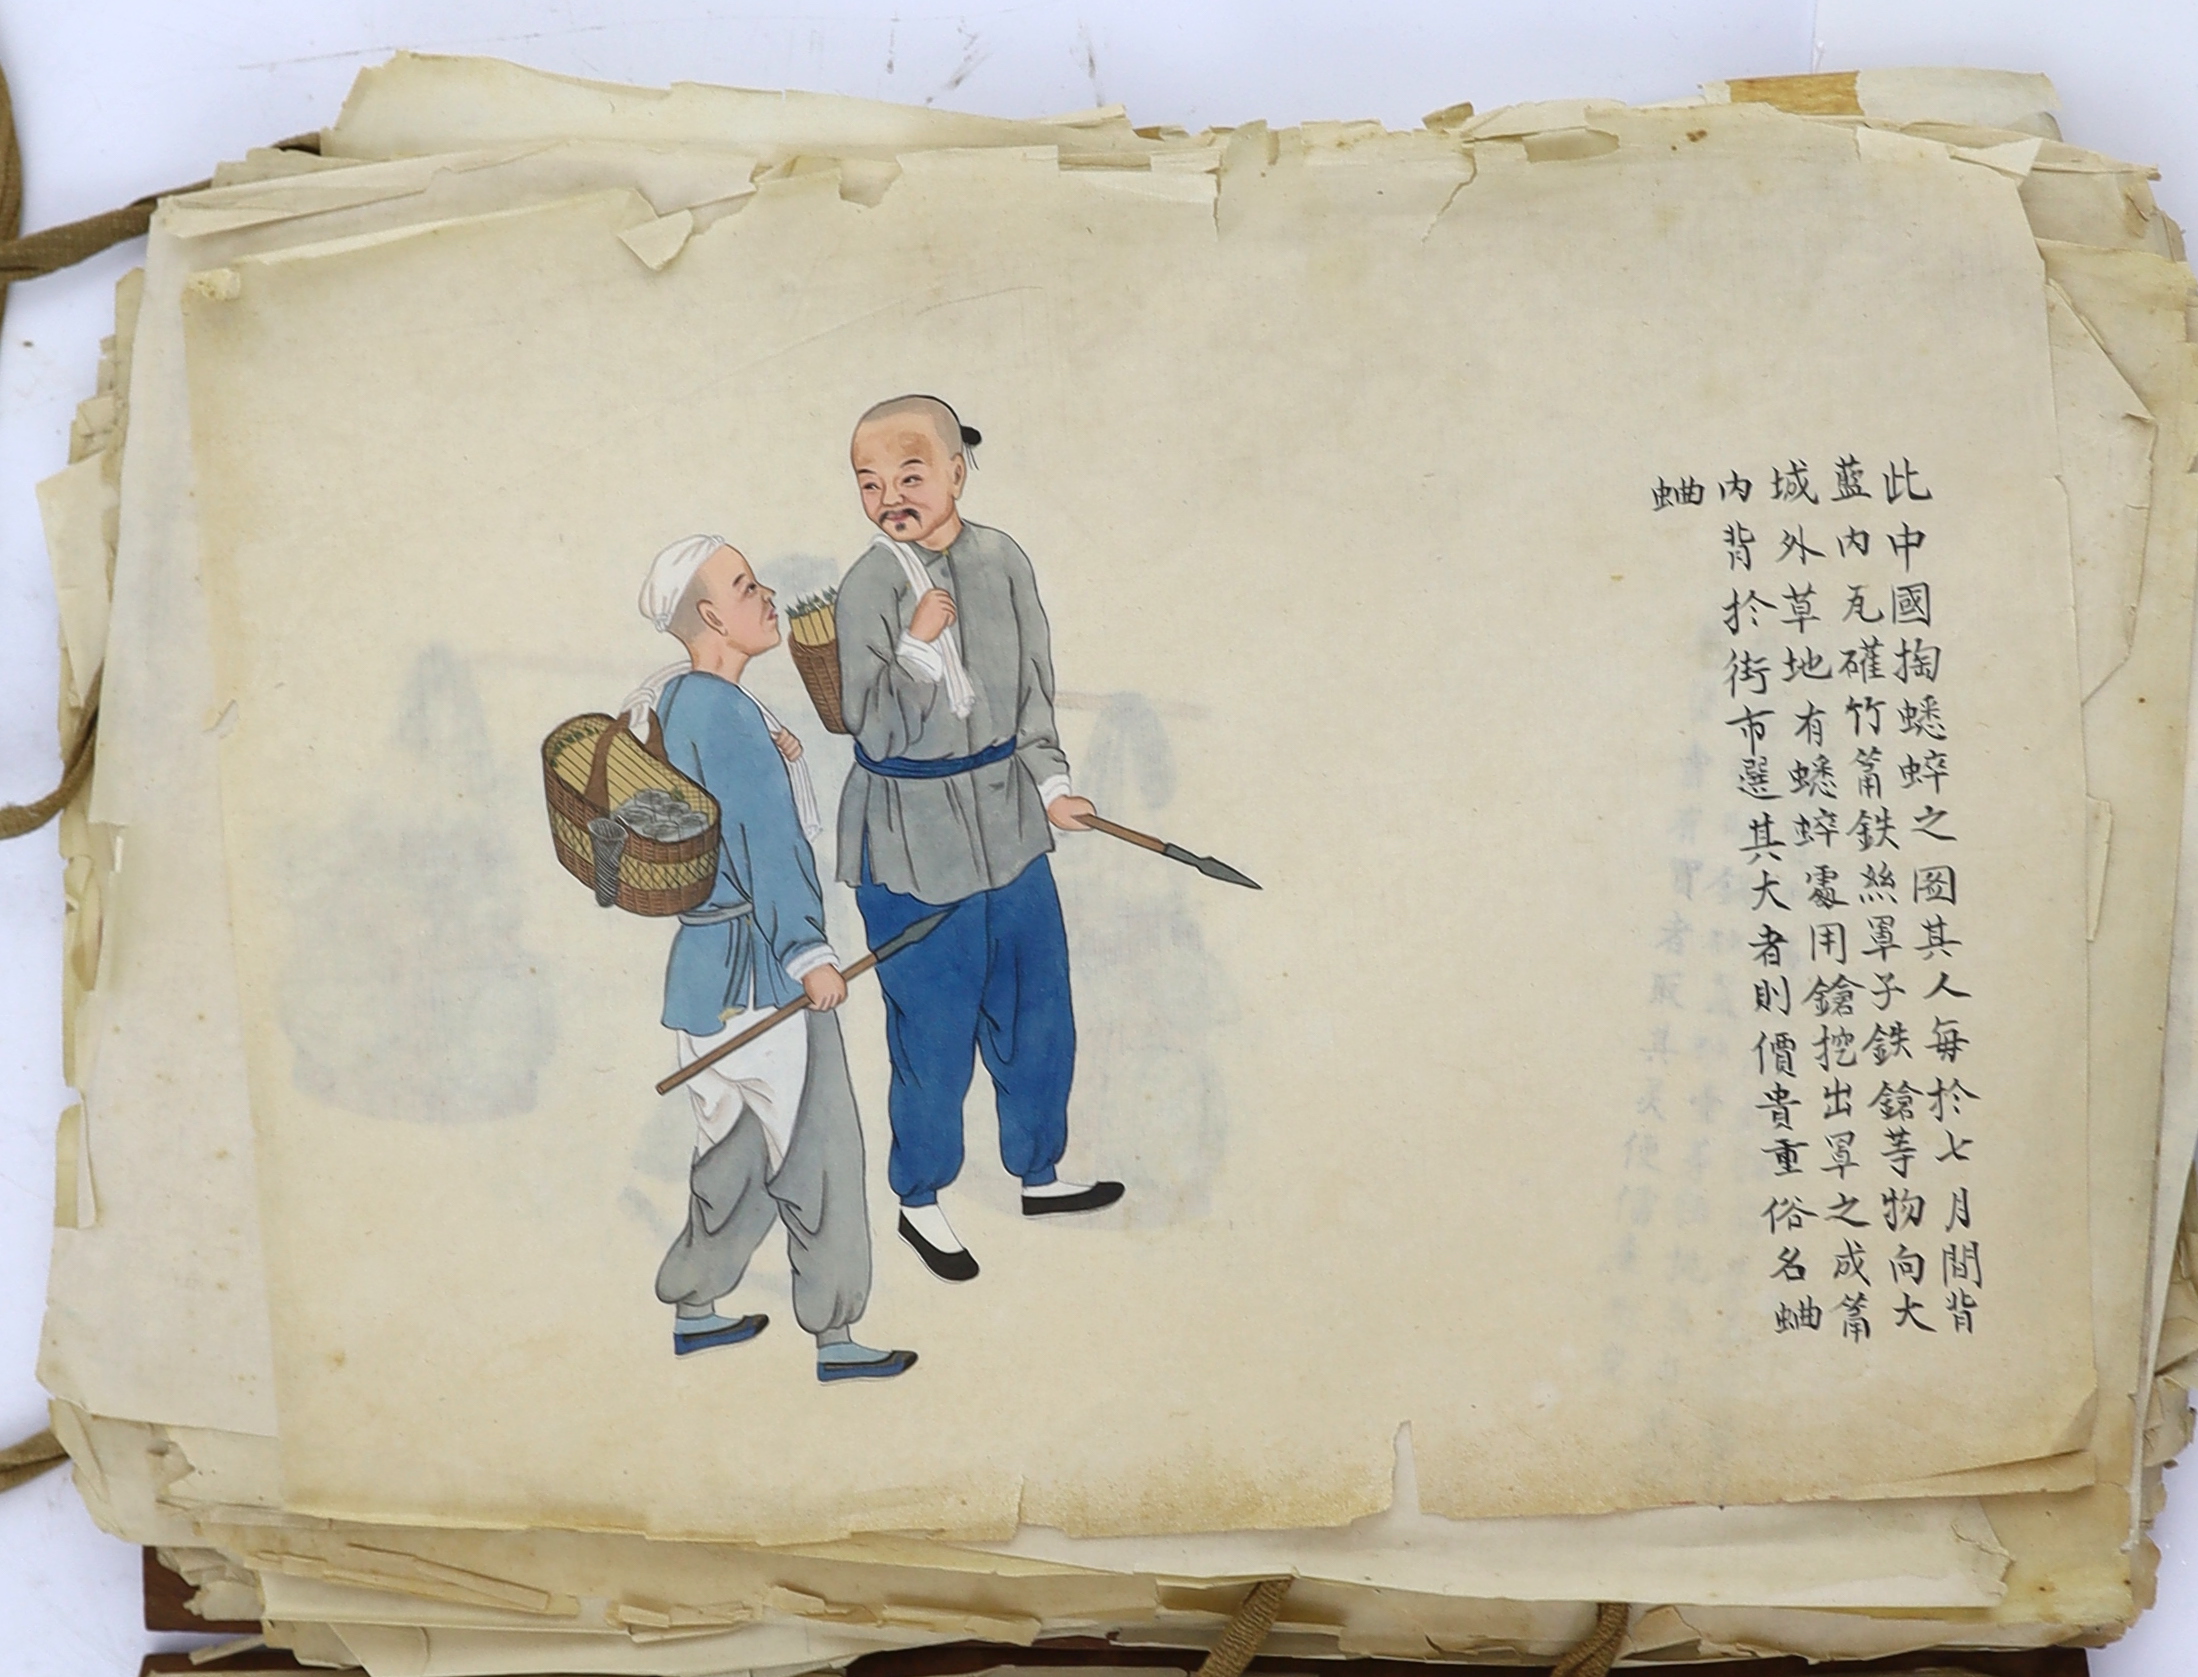 此中國掏蟋蟀之圖其人每扵七月間背
藍內瓦礶竹筩鉄絲罩子鉄鎗等物向大
城外草地有蟋蟀處用鎗挖出罩之成筩
內背扵街市選其大者則價貴重俗名蛐
蛐